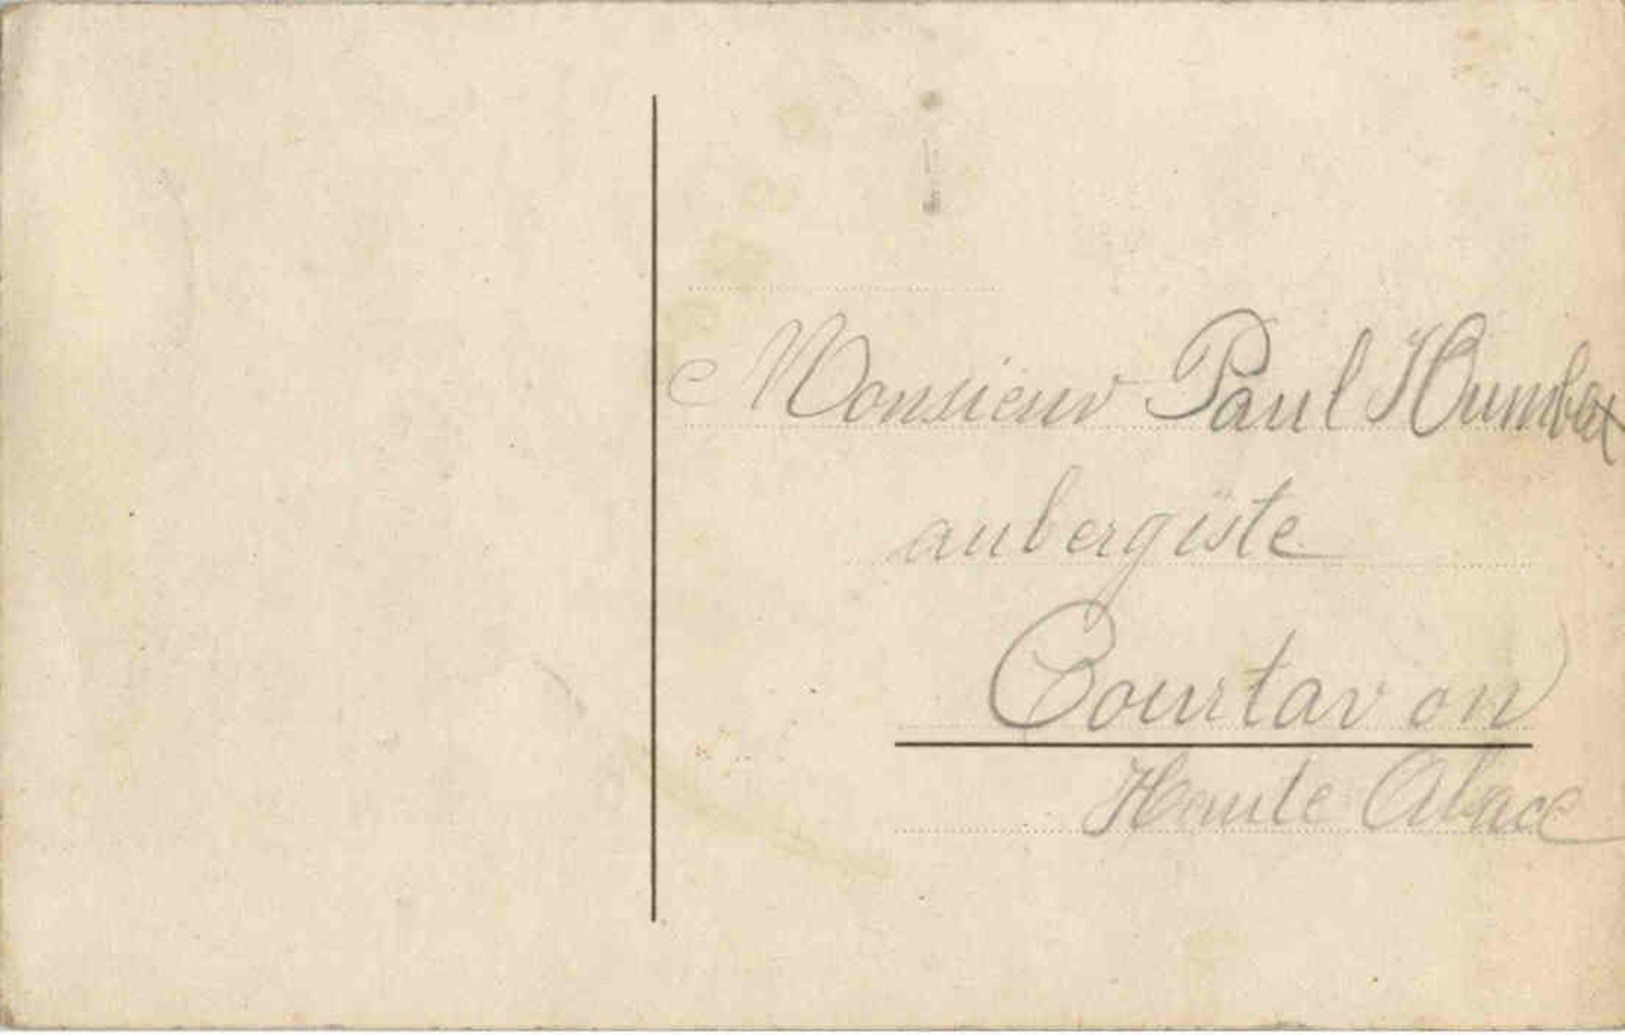 Monsieur Paul
aubergiste
Courtavon
Haute Alsace